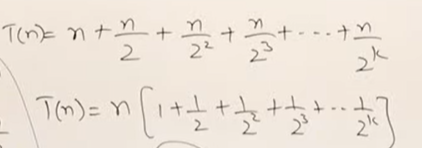 T(n)= n + n/2 + n/2² + n/2³ + --- + n/2ᵏ
T(n) = n [1 + 1/2 + 1/2² + 1/2³ + -- 1/2ᵏ]